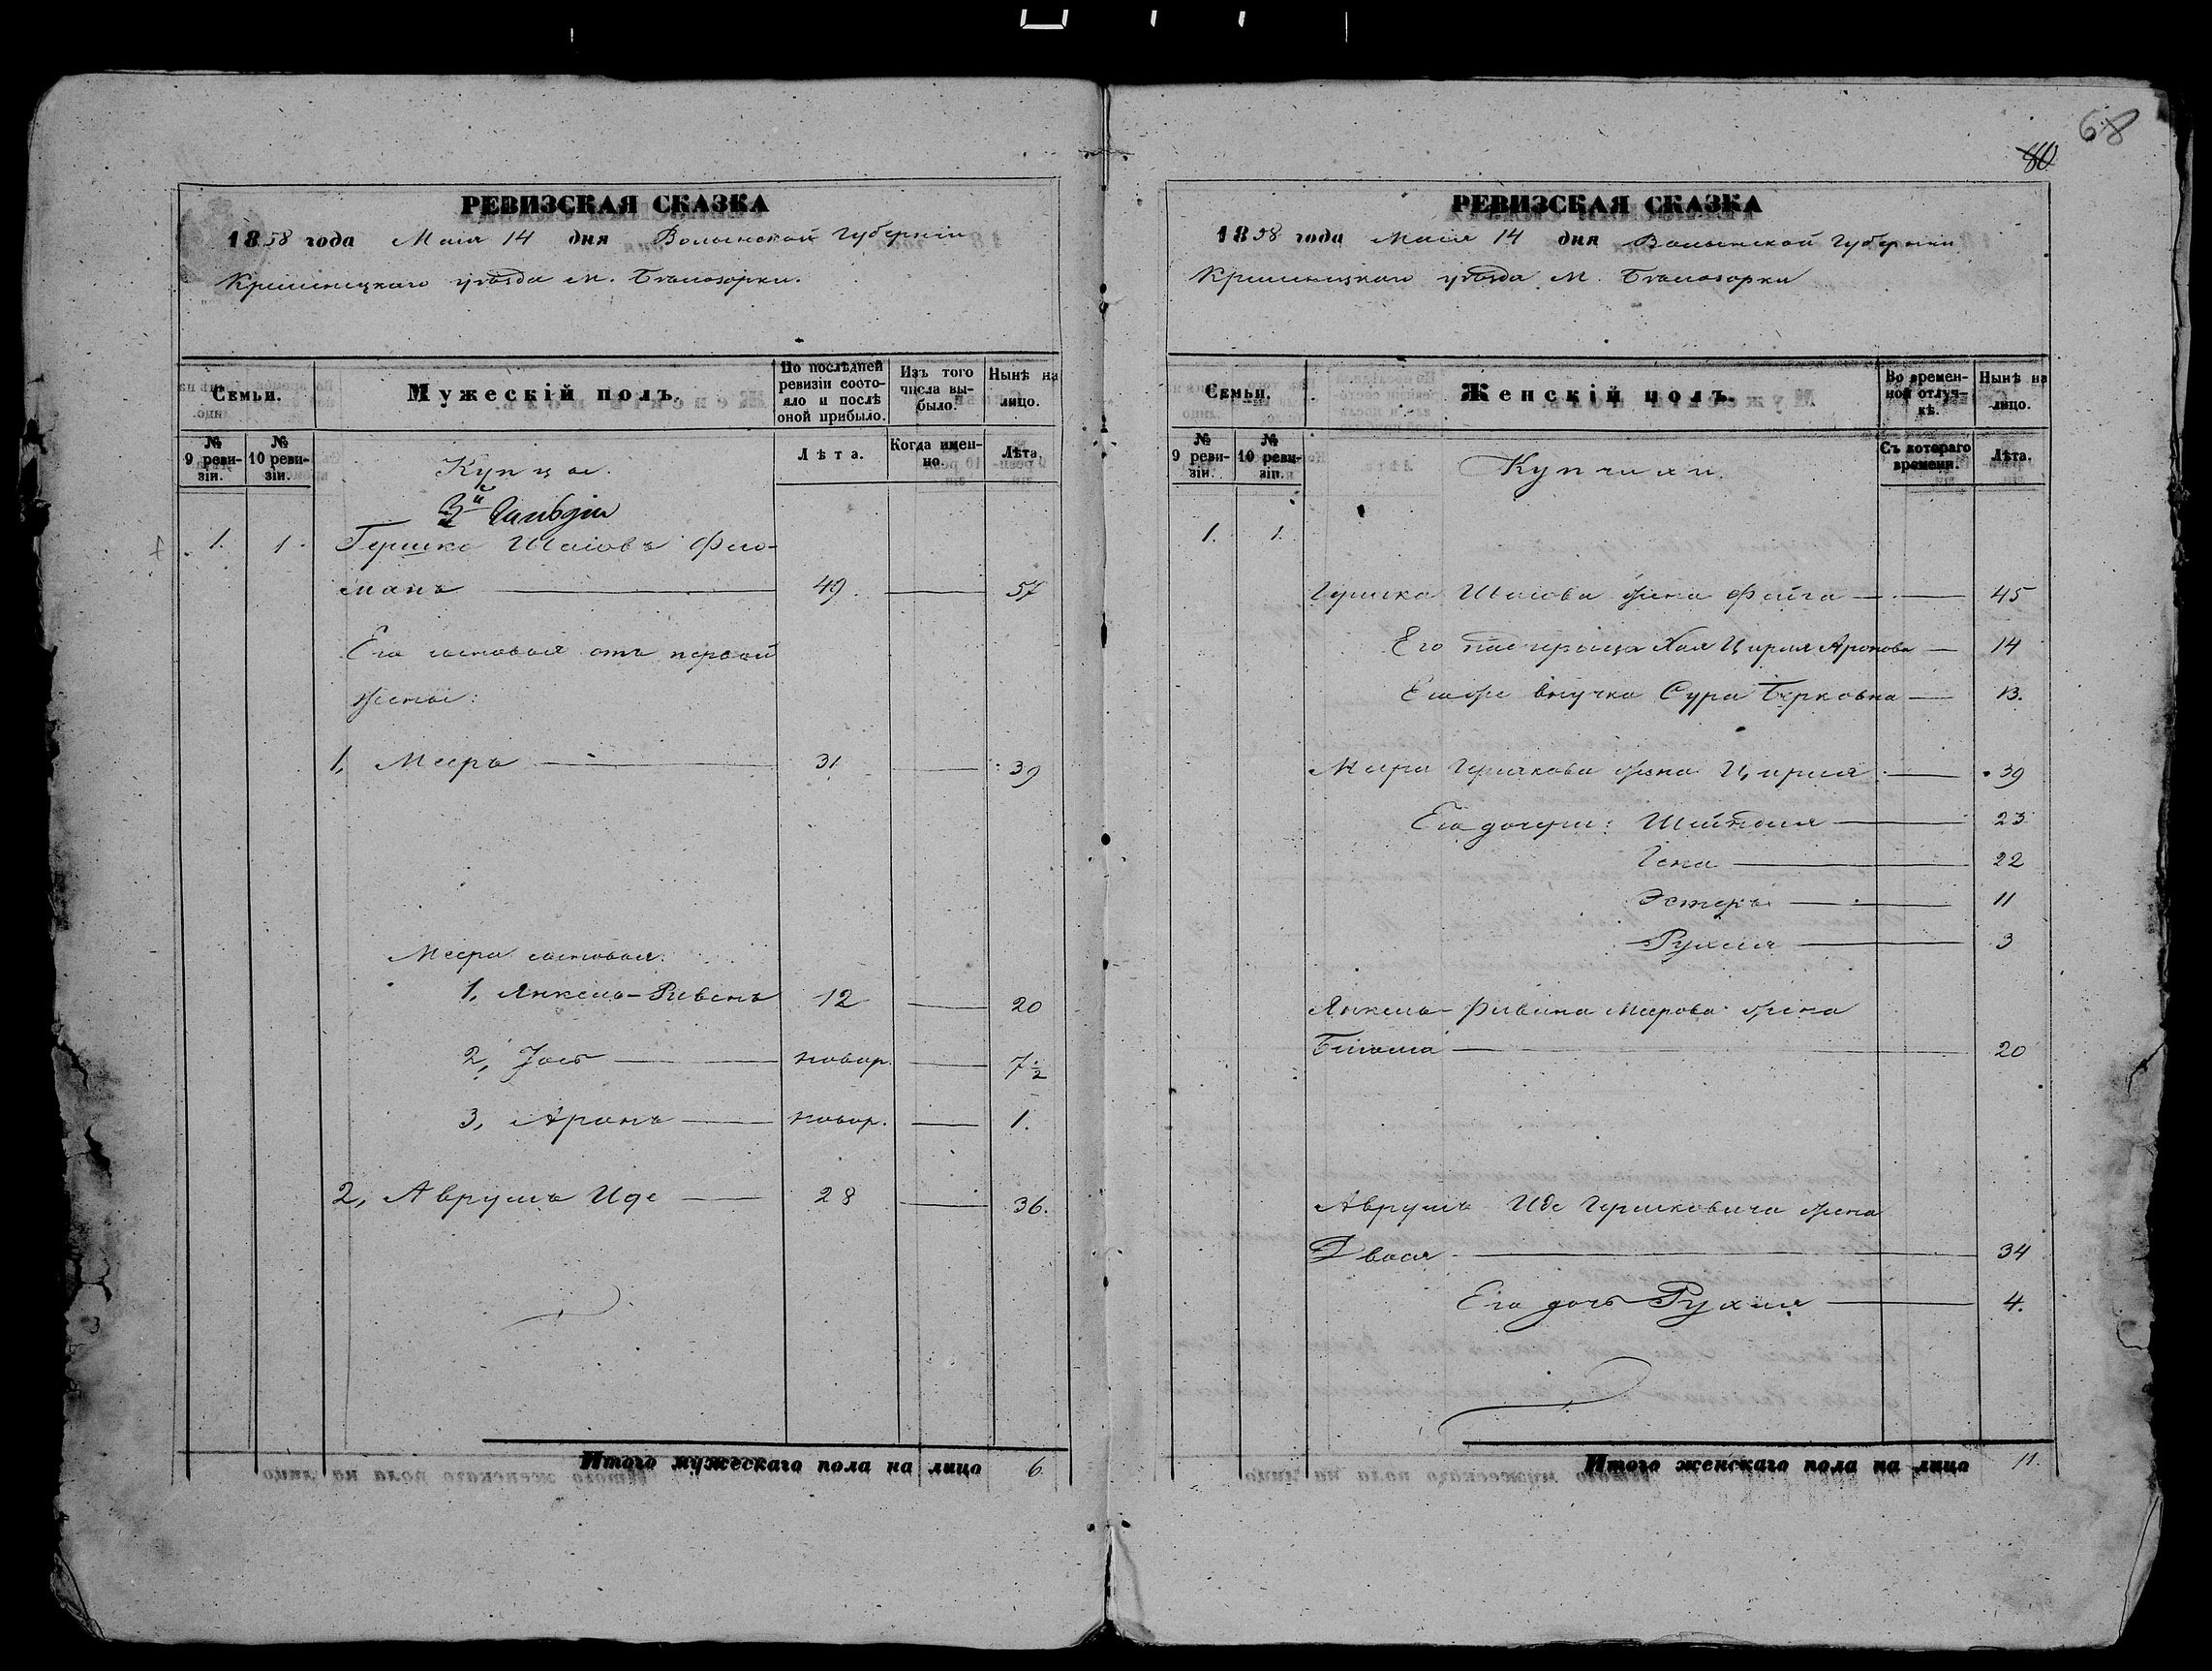 68
80
РЕВИЗСКАЯ СКАЗКА
1858 года Маія 14 дня Волынской Губерніи
Кременецкаго уѣзда м. Бѣлозорки.
Семьи.
Мужескій полъ.
По послѣдней ревизіи состояло и послѣ оной прибыло.
Изъ того числа выбыло.
Нынѣ на лицо.
№ 9 ревизіи.
№ 10 ревизіи.
Лѣта.
Когда именно.
Лѣта.
Купцы.
3й Гильдіи
1. 1. Гершко Шаіовъ Фельманъ 49. 57
Его сыновья отъ первой
жены:
1, Мееръ 31 39
Меера сыновья:
1, Янкель-Ривенъ 12 20
2, Іось новор. 7 1/2
3, Аронъ новор. 1.
2, Аврумъ Иде 28 36.
Итого мужескаго пола на лицо 6.
РЕВИЗСКАЯ СКАЗКА
1858 года Маія 14 дня Волынской Губерніи
Кременецкаго уѣзда м. Бѣлозорки
Семьи.
Женскій полъ.
Во временной отлучкѣ.
Нынѣ на лицо.
№ 9 ревизіи.
№ 10 ревизіи.
Съ котораго времени.
Лѣта.
Купчихи.
1. 1.
Гершка Шаіова жена Фейга 45
Его падчерица Хая Цирля Аронова 14
Егоже внучка Сура Берковна 13.
Меера Гершкова жена Цирля 39
Его дочери: Шейндля 23
Гена 22
Эстеръ 11
Рухля 3
Янкель-Ривина Меерова жена
20
Аврумъ Иде Гершковича жена
Двося 34
Его дочь Рухля 4.
Итого женскаго пола на лицо 11.